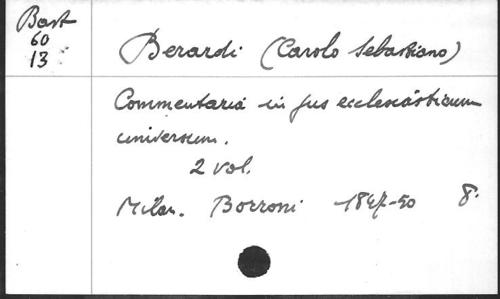 Bast
60
13
Berardi (Carolo Sebastiano)
Commentaria in jus ecclesiasticum
universum.
2 vol.
Milan. Borroni 1847-50 8°